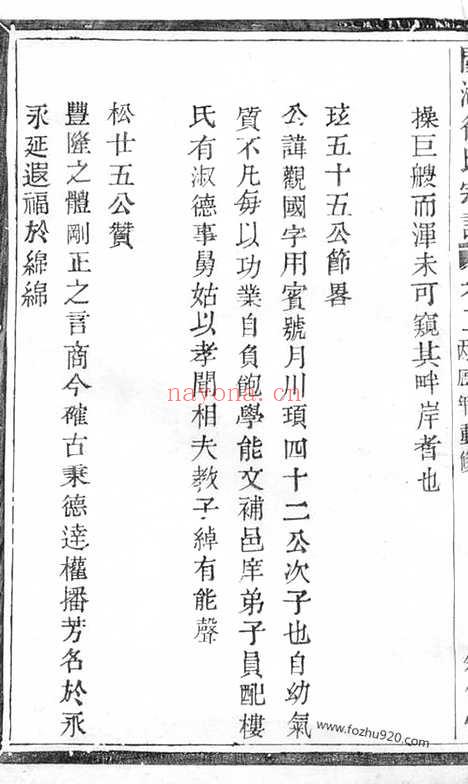 操巨艘而渾未可窺其畔岸者也
玹五十五公節畧
公諱觀國字用賓號月川頊四十二公次子也自幼氣
質不凡每以功業自負飽學能文補邑庠弟子員配樓
氏有淑德事舅姑以孝聞相夫教子綽有能聲
松廿五公贊
豐隆之體剛正之言商今確古秉德達權播芳名於永
永延遐福於綿綿
nayona.cn
www.fozhu920.com